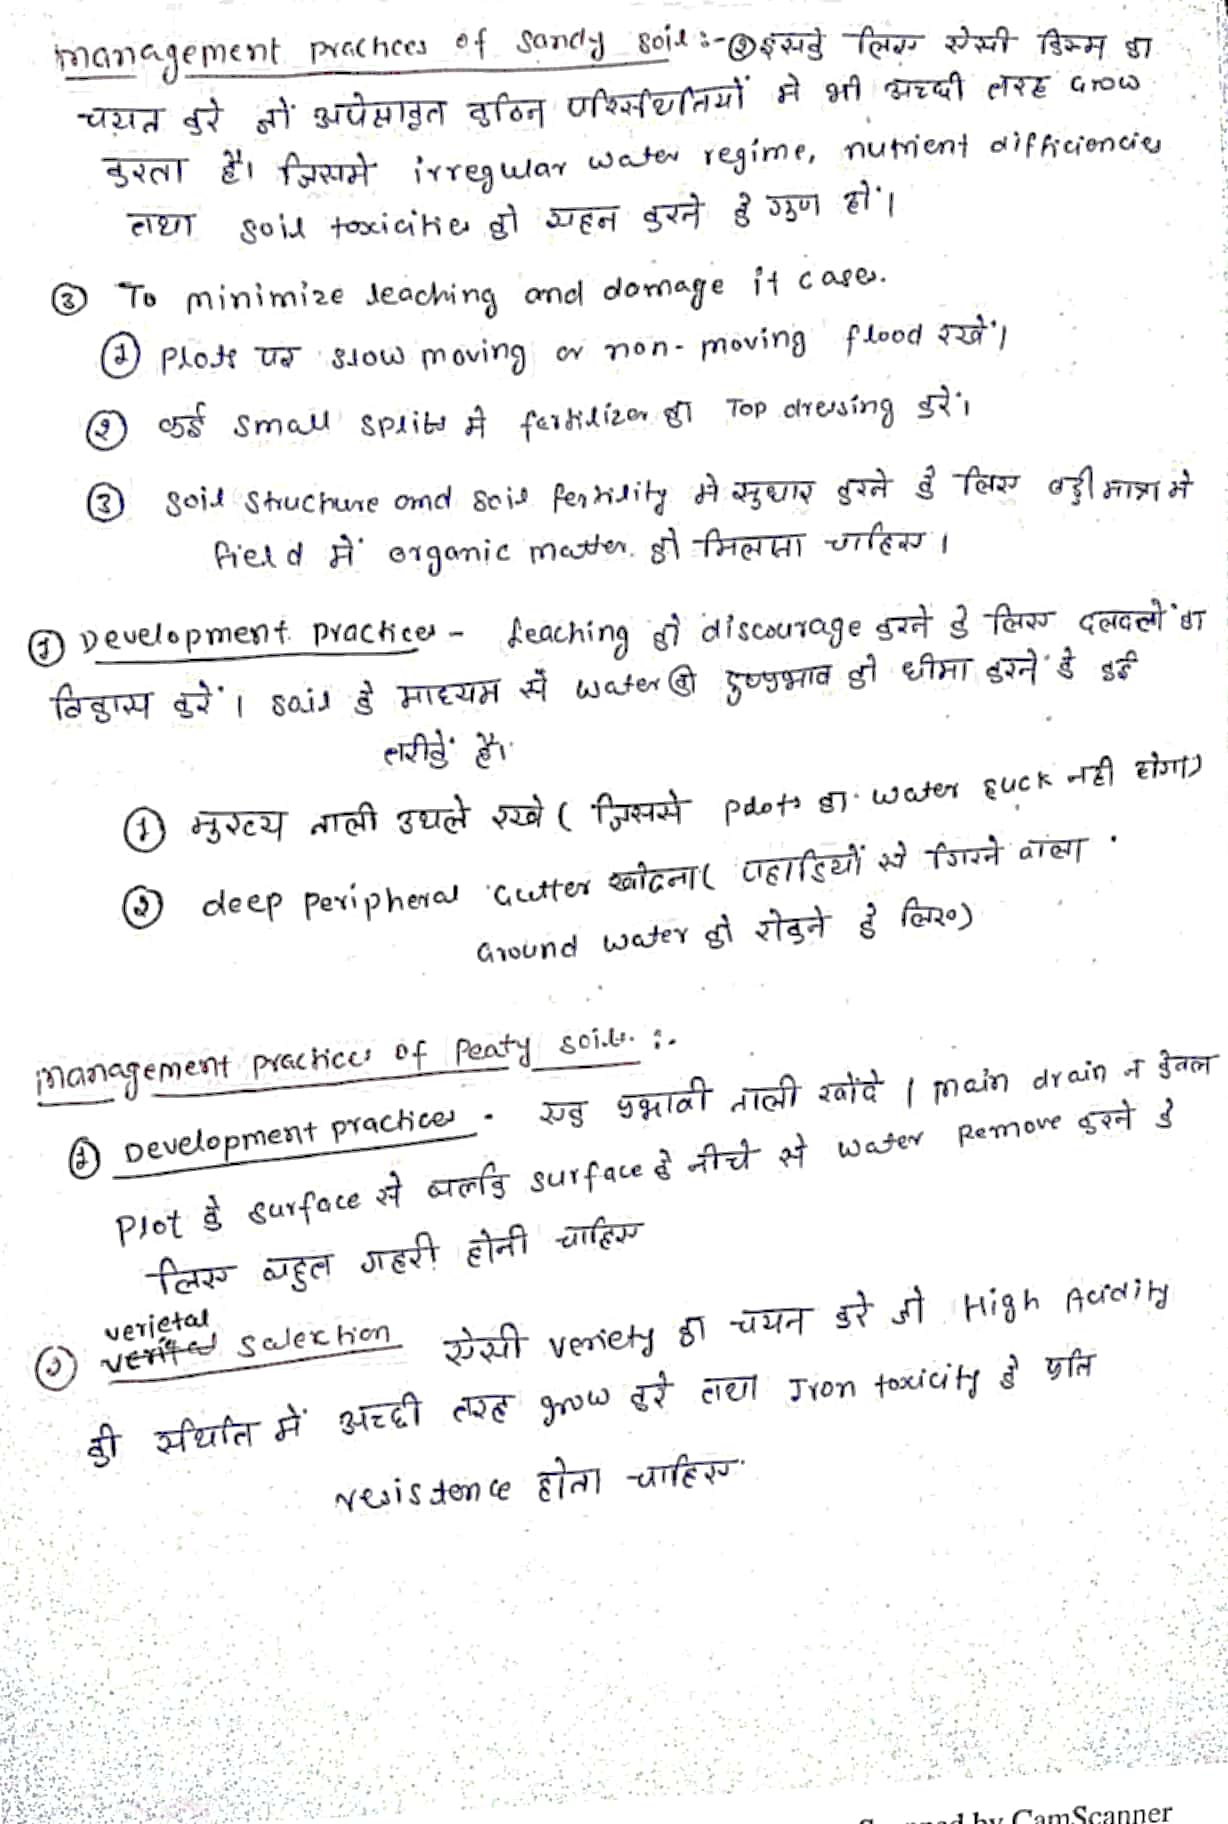 management practices of sandy soil :- ② इसके लिए ऐसी किस्म का
चयन करे जो अपेक्षाकृत कठिन परिस्थितियों मे भी अच्छी तरह Grow
करता है। जिसमे irregular water regime, nutrient difficiencies
तथा soil toxicities को सहन करने के गुण हो।
③ To minimize leaching and damage it case.
① Plots पर slow moving or non-moving flood रखें।
② कई small splits मे fertilizer का Top dressing करें।
③ soil structure and soil fertility मे सुधार करने के लिए बड़ी मात्रा मे
field में organic matter को मिलाना चाहिए।
① Development practices - Leaching को discourage करने के लिए दलदलों का
विकास करें। soil के माध्यम से water के दुष्प्रभाव को धीमा करने के कई
तरीके है।
① मुख्य नाली उथले रखे ( जिससे plots का water suck नही होगा)
② deep peripheral Gutter खोदना ( पहाडियों से गिरने वाला
Ground water को रोकने के लिए)
management practices of Peaty soils :-
① Development practices - एक प्रभावी नाली खोंदे । main drain न केवल
Plot के surface से बल्कि surface के नीचे से water Remove करने के
लिए बहुत गहरी होनी चाहिए
verietal
② selection ऐसी veriety का चयन करे जो High Acidity
की स्थिति में अच्छी तरह grow करे तथा Iron toxicity के प्रति
resistence होना चाहिए
by CamScanner